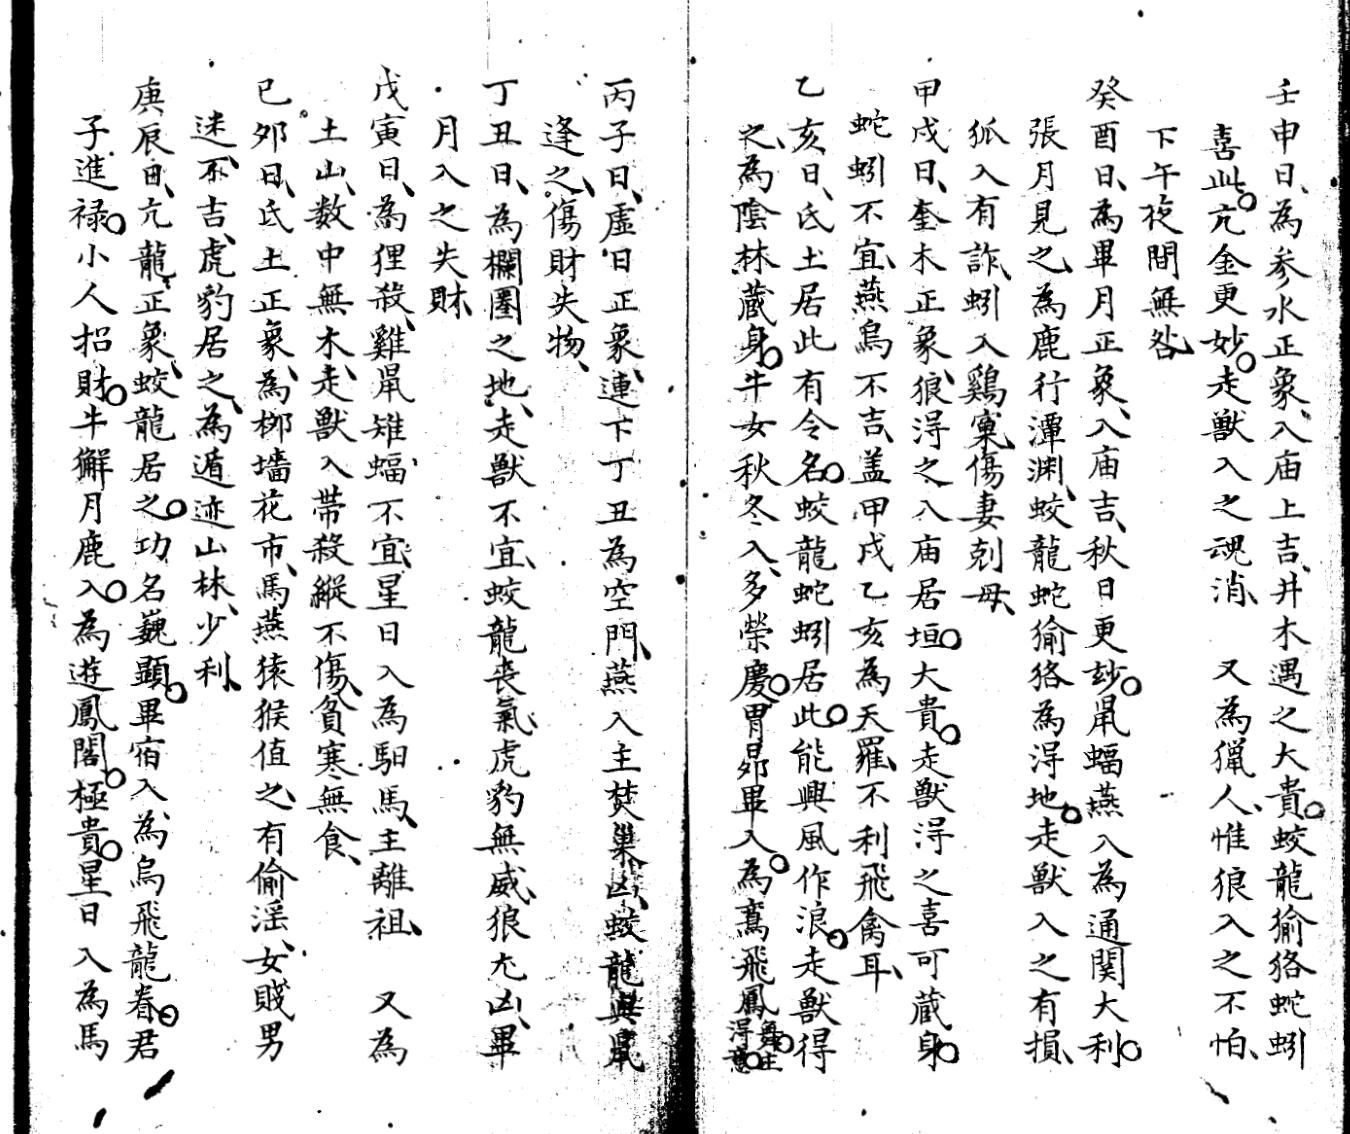 壬申日、為参水正象、入庙上吉、井木遇之大貴。蛟龍㺄狢蛇蚓
喜此。亢金更妙。走獣入之魂消、　又為獵人、惟狼入之不怕、
下午夜間無咎、
癸酉日、為畢月正象、入庙吉、秋日更玅。鼠蝠燕入為通関大利。
張月見之、為鹿行潭渊、蛟龍蛇㺄狢為得地。走獣入之有損、
狐入有詐、蚓入鷄窠、傷妻剋母、
甲戌日、奎木正象、狼得之入庙居垣。大貴。走獣得之喜可蔵身。
蛇蚓不宜、燕烏不吉、盖甲戌乙亥為天羅、不利飛禽耳、
乙亥日、氐土居此有令名。蛟龍蛇蚓居此。能興風作浪。走獣得
之、為陰林蔵身。牛女秋冬入、多荣慶。胃昴畢入。為鸞飛鳳
丙子日、虚日正象、連下丁丑為空門、燕入主焚巢凶、蛟龍與鼠
逢之、傷財失物、
丁丑日、為欄圈之地、走獣不宜、蛟龍丧氣、虎豹無威、狼尤凶、畢
月入之失財、
戊寅日、為狸殺、雞鼠雉蝠不宜、星日入為馹馬、主離祖、　又為
土山、数中無木、走獣入带殺縦不傷、貧寒無食、
已夘日、氐土正象、為栁墻花市、馬燕猿猴值之、有偷淫、女賊男
迷、不吉、虎豹居之、為遁迹山林、少利、
庚辰日、亢龍正象、蛟龍居之。功名巍顕。畢宿入為烏飛龍春。君
子進禄。小人招財。牛獬月鹿入。為遊鳳閣。極貴。星日入為馬